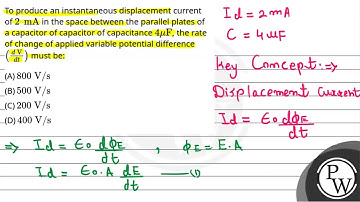 To produce an instantaneous displacement current
of 2 mA in the space between the parallel plates of
a capacitor of capacitor of capacitance 4μF, the rate
of change of applied variable potential difference
(dV/dt) must be:
(A) 800 V/s
(B) 500 V/s
(C) 200 V/s
(D) 400 V/s
Id = 2 mA
C = 4 μF
Key Concept :⇒
Displacement Current
Id = ε0 dΦE/dt
⇒ Id = ε0 dΦE/dt , ΦE = E.A
Id = ε0.A dE/dt —(1)
P
W